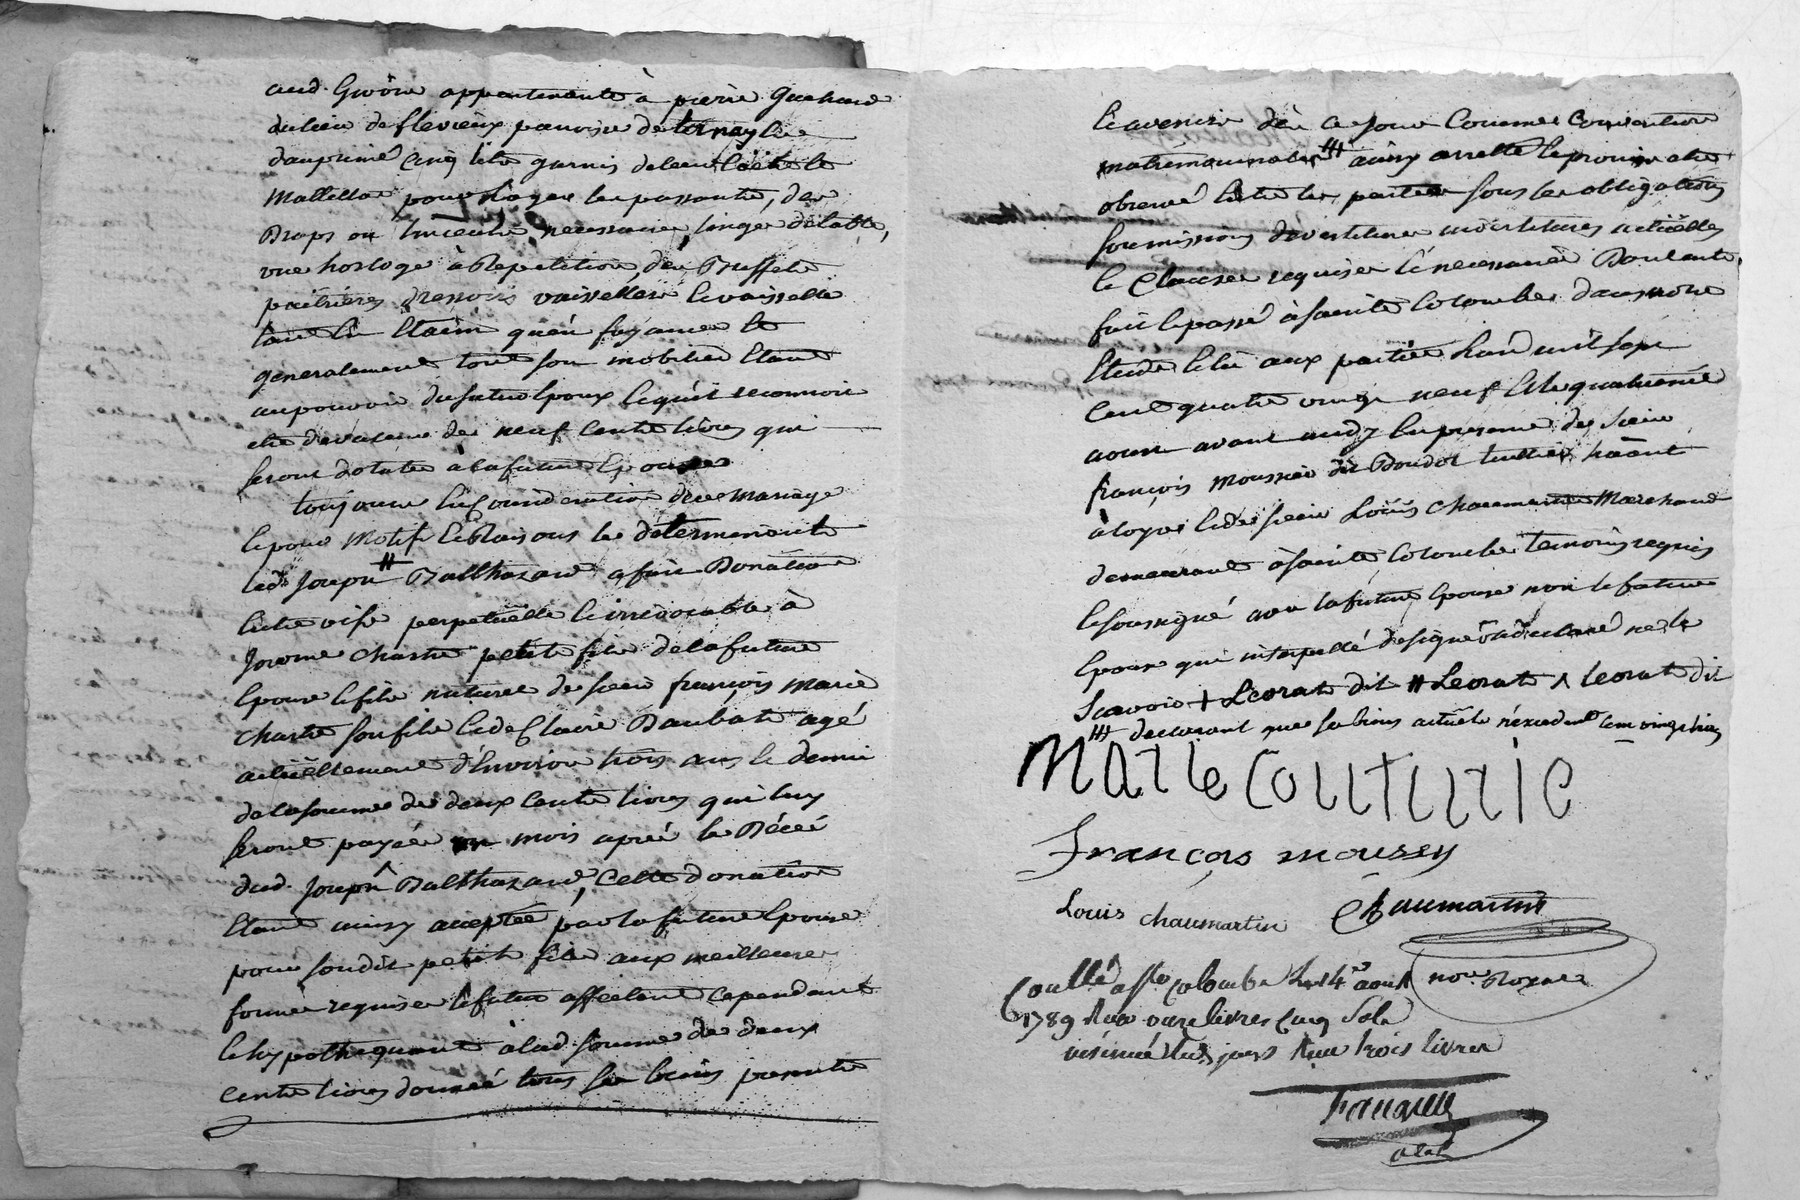 aud. Givôrs appartenante à pierre Guichard
du lieu de flevieux paroisse de ternay en
dauphiné Cinq lits garnis de leur Coëtte et
Mattellas pour Loger les passants, des
Draps ou linceuls nécessaires, linges de table,
une horloge à Repetition, des Buffets
paitrières, dressoirs vaisselliers et vaisselle
tant En Etaim qu'en fayance et
generalement tout son mobilier Etant
au pouvoir du futur Epoux lequel reconnoit
etre de valeur de neuf Cents livres qui
seront dotales à la future Epouse
toujours En Consideration de ce mariage
et pour Motifs et Raisons les determinants
led. Joseph # Balthazard a fait Donation
Entre vifs perpetuelle et irrévocable à
Jerome Chastre petit fils de la future
Epouse et fils naturel de sieur françois marie
Chastre son fils et de Claire Baubate agé
actuellement d'Environ trois ans et demi
de la somme de deux Cents livres qui luy
seront payée un mois après le Décéé
dud. Joseph ^ Balthazard, Cette donation
Etant ainsy acceptée par la future Epouse
pour sondit petit fils aux meilleures
formes requises le futur affectant Cependant
et hypothequant à lad. somme de deux
Cents livres donnée tous ses biens presents
Et avenirs dès Ce jour Comme Convention
matrimoniales ### ainsy arretté et promis etre
observé Entre les parties sous les obligations
soumissions devestitures investitures actuelles
et Clauses requises Et necessaires Doulente
fait et passé à sainte Colombe dans notre
Etude et lû aux parties L'an mil sept
Cent quatre vingt neuf Et le quatrième
aoust avant midy En presence des sieur
françois Moussier dit Boudot tuillier habitant
à loyre et de sieur Loüis Chaumartin Marchand
demeurant à sainte Colombe temoins requis
et soussigné avec la future Epouse non le futur
Epoux qui interpellé de signer a declaré ne le
Scavoir + Leorat dit # Leorat ^ leorat dit
### declarant que ses biens actuels n'excedent cent vingt livres
Marie Couturie
François moussy
Louis chaumartin Chaumartin
nore Royal
Contllé a Ste Colombe Le 14e aoust
1789 Reçu onze livres Cinq Sols
insinué led. jour Reçu trois livres